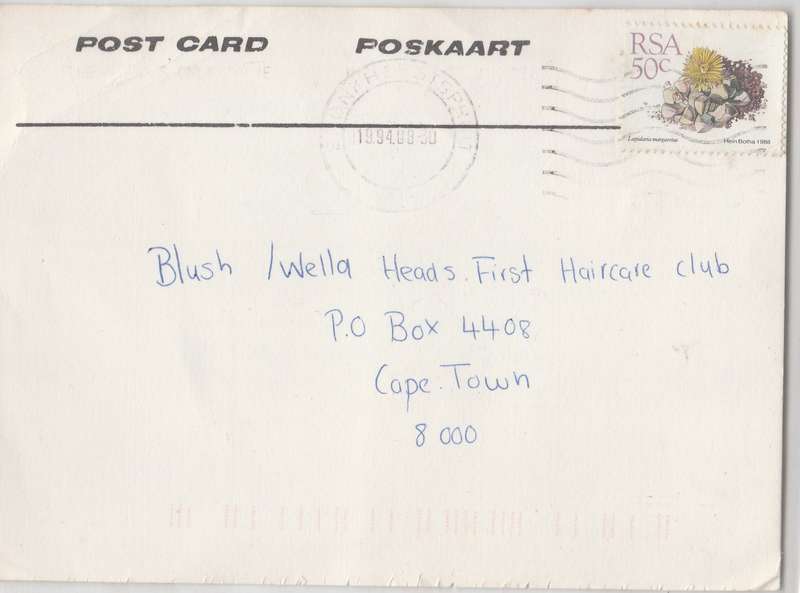 POST CARD POSKAART
RSA
50c
Lapidaria margaretae
Hein Botha 1988
Blush /Wella Heads. First Haircare club
P.O Box 4408
Cape. Town
8 000